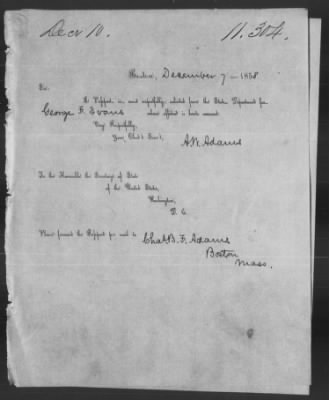 Decr 10. 11.304.
Boston, December 7 - 1858
Sir.
A Passport is most respectfully solicited from the State Department for
George F. Evans whose affidavit is herein
Very Respectfully,
Your Obed't Serv't,
A.W. Adams
To the Honorable the Secretary of State
of the United States,
Washington,
D. C.
Please forward the Passport per mail to Chas. B. F. Adams
Boston
Mass.